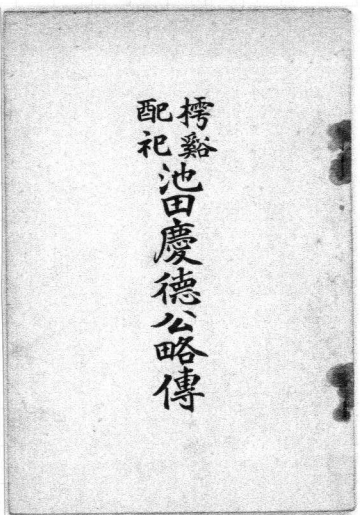 樗谿
配祀
池田慶德公略傳